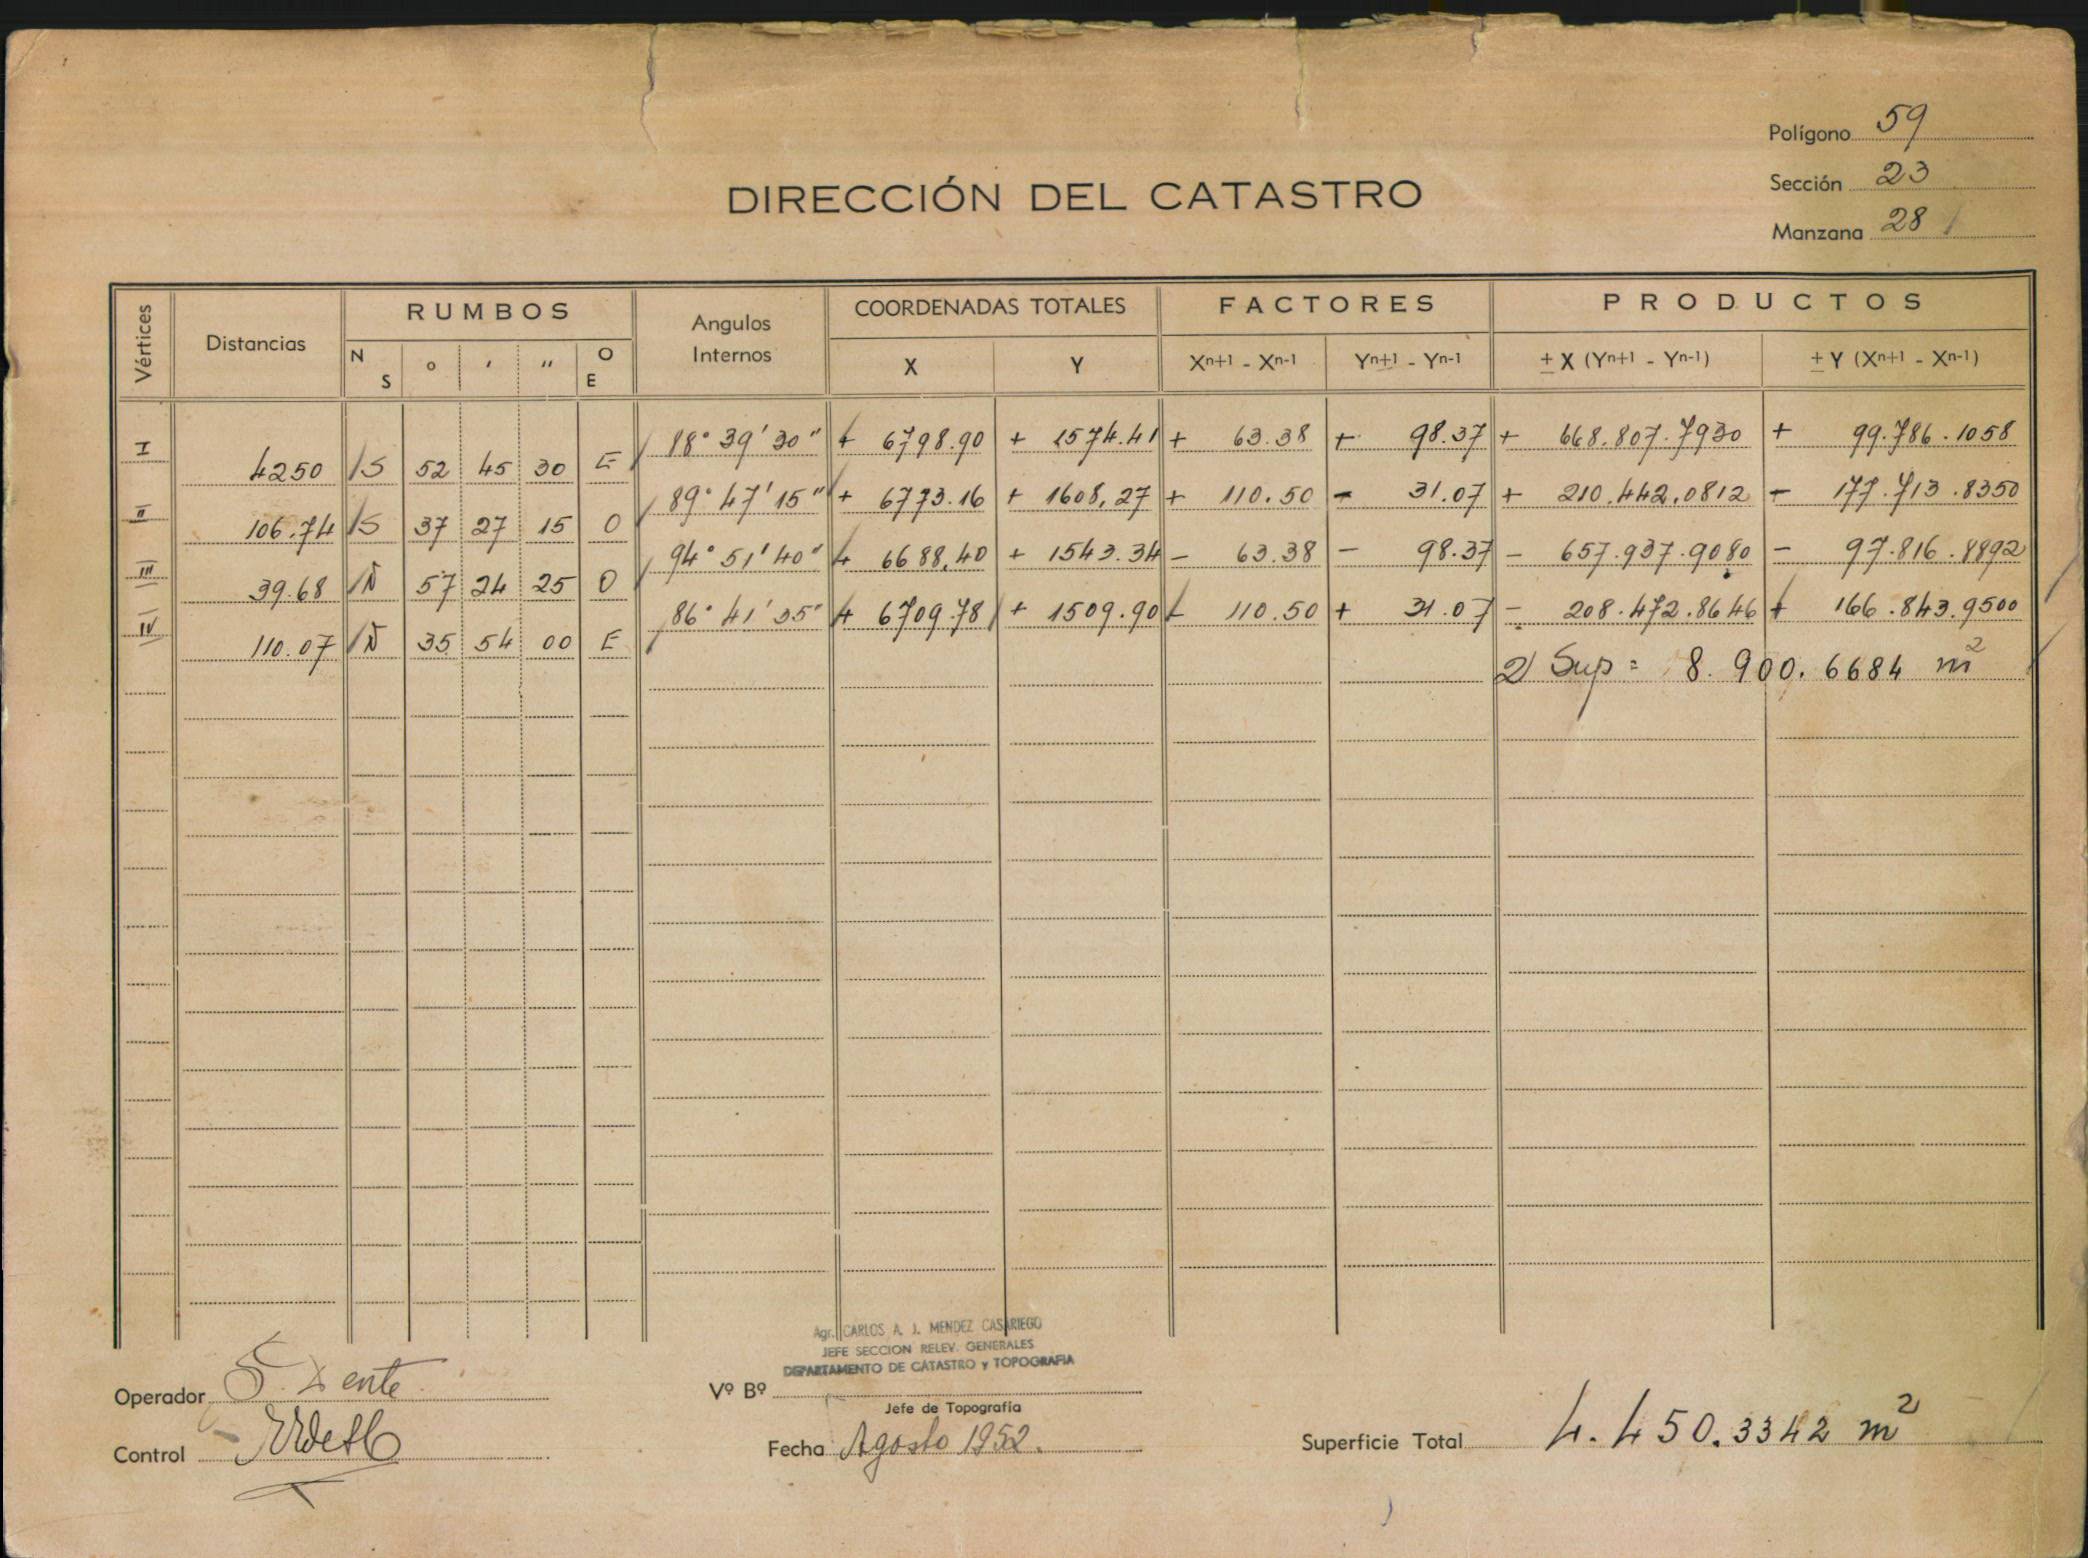 Polígono 59
Sección 23
Manzana 28
DIRECCIÓN DEL CATASTRO
Vértices Distancias RUMBOS Angulos Internos COORDENADAS TOTALES FACTORES PRODUCTOS
N S ° ' " O E X Y Xn+1 - Xn-1 Yn+1 - Yn-1 ± X (Yn+1 - Yn-1) ± Y (Xn+1 - Xn-1)
I 88° 39' 30" + 6798.90 + 1574.41 + 63.38 + 98.37 + 668.807.7930 + 99.786.1058
4250 S 52 45 30 E
II 89° 47' 15" + 6773.16 + 1608,27 + 110.50 - 31.07 + 210.442,0812 - 177.713.8350
106.74 S 37 27 15 O
III 94° 51' 40" + 6688,40 + 1543.34 - 63.38 - 98.37 - 657.937.9080 - 97.816.8892
39.68 N 57 24 25 O
IV 86° 41' 35" + 6709.78 + 1509.90 - 110.50 + 31.07 - 208.472.8646 + 166.843.9500
110.07 N 35 54 00 E
2 Sup = 8.900.6684 m²
Agr. CARLOS A. J. MENDEZ CASARIEGO
JEFE SECCION RELEV. GENERALES
DEPARTAMENTO DE CATASTRO y TOPOGRAFIA
Operador
Vº Bº
Jefe de Topografía
Control
Fecha Agosto 1952.
Superficie Total 4.450.3342 m²